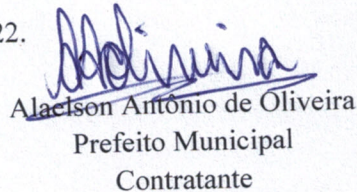 22.
Alaelson Antônio de Oliveira
Prefeito Municipal
Contratante